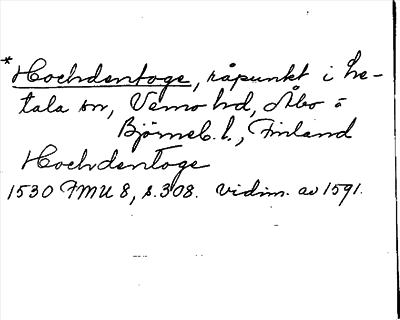 *Hochdentoge, råpunkt i Le-
tala sn, Vemo hd, Åbo o
Björneb. l., Finland
Hochdentoge
1530 FMU 8, s.308. Vidim. av 1591.